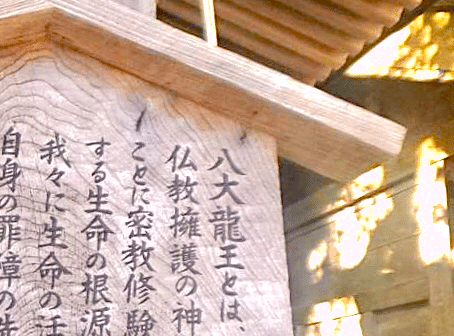 八大龍王とは、
仏教擁護の神
ことに密教修験
する生命の根源
我々に生命の活
自身の罪障の